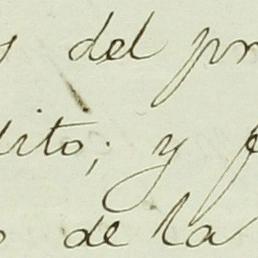 del pr
dito; y
de la